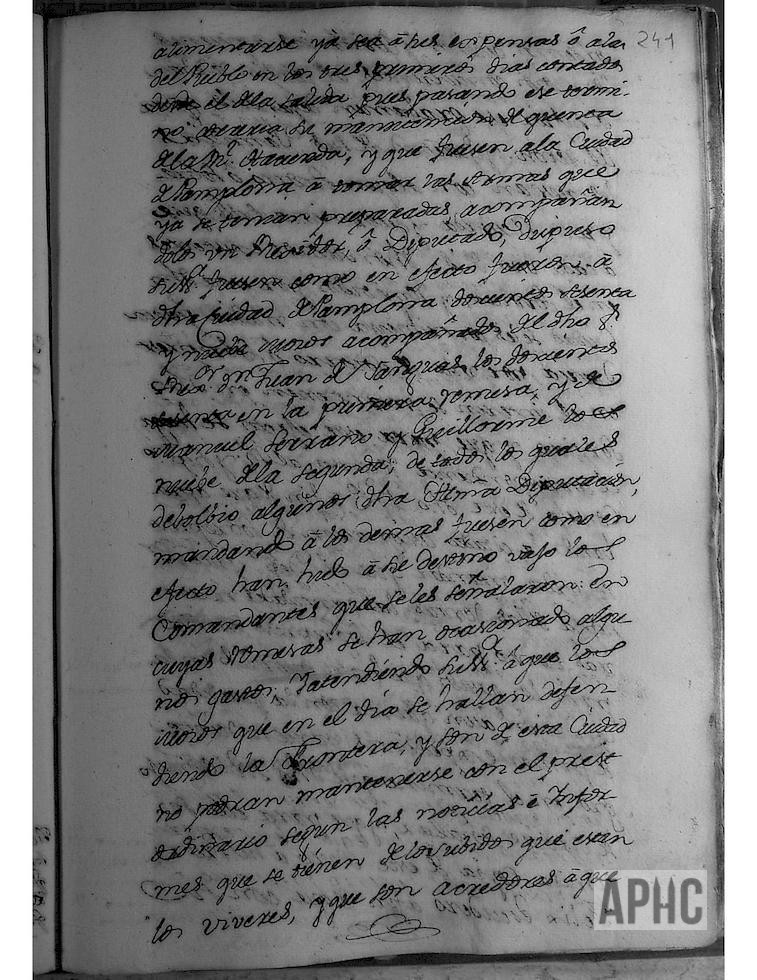 241
alimentarse ya sea â sus expensas ô alas
del Pueblo en los tres primeros dias contados
desde el de la salida pues pasando ese termi-
no, correria su manutencion de quenta
de la Rl. Hacienda, y que fuesen ala Ciudad
de Pamplona â tomar las Armas que
ya se tenian preparadas, acompañan
dolos un Regidor, ô Diputado, dispuso
su Sª. fuesen como en efecto fueron â
dha Ciudad de Pamplona docientos setenta
y nuebe mozos acompañados del dho Sr.
Dn. Juan de los docientos
en la primera remesa, y de
Manuel Serrano y Guillorme los
nuebe de la segunda, de todos los quales
debolbio algunos dha Illma Diputacion,
mandando â los demas fuesen como en
efecto han hido â su destino vajo los
Comandantes que se les señalaron: en
cuyas remesas se han ocasionado algu
nos gastos, Yatendiendo su Sª. â que los
mozos que en el dia se hallan defen
diendo la Frontera, y son de esta Ciudad
no podran mantenerse con el prest
ordinario segun las noticias ê Infor
mes que se tienen de lo subidos que estan
los viveres, y que son acredores â que
APHC